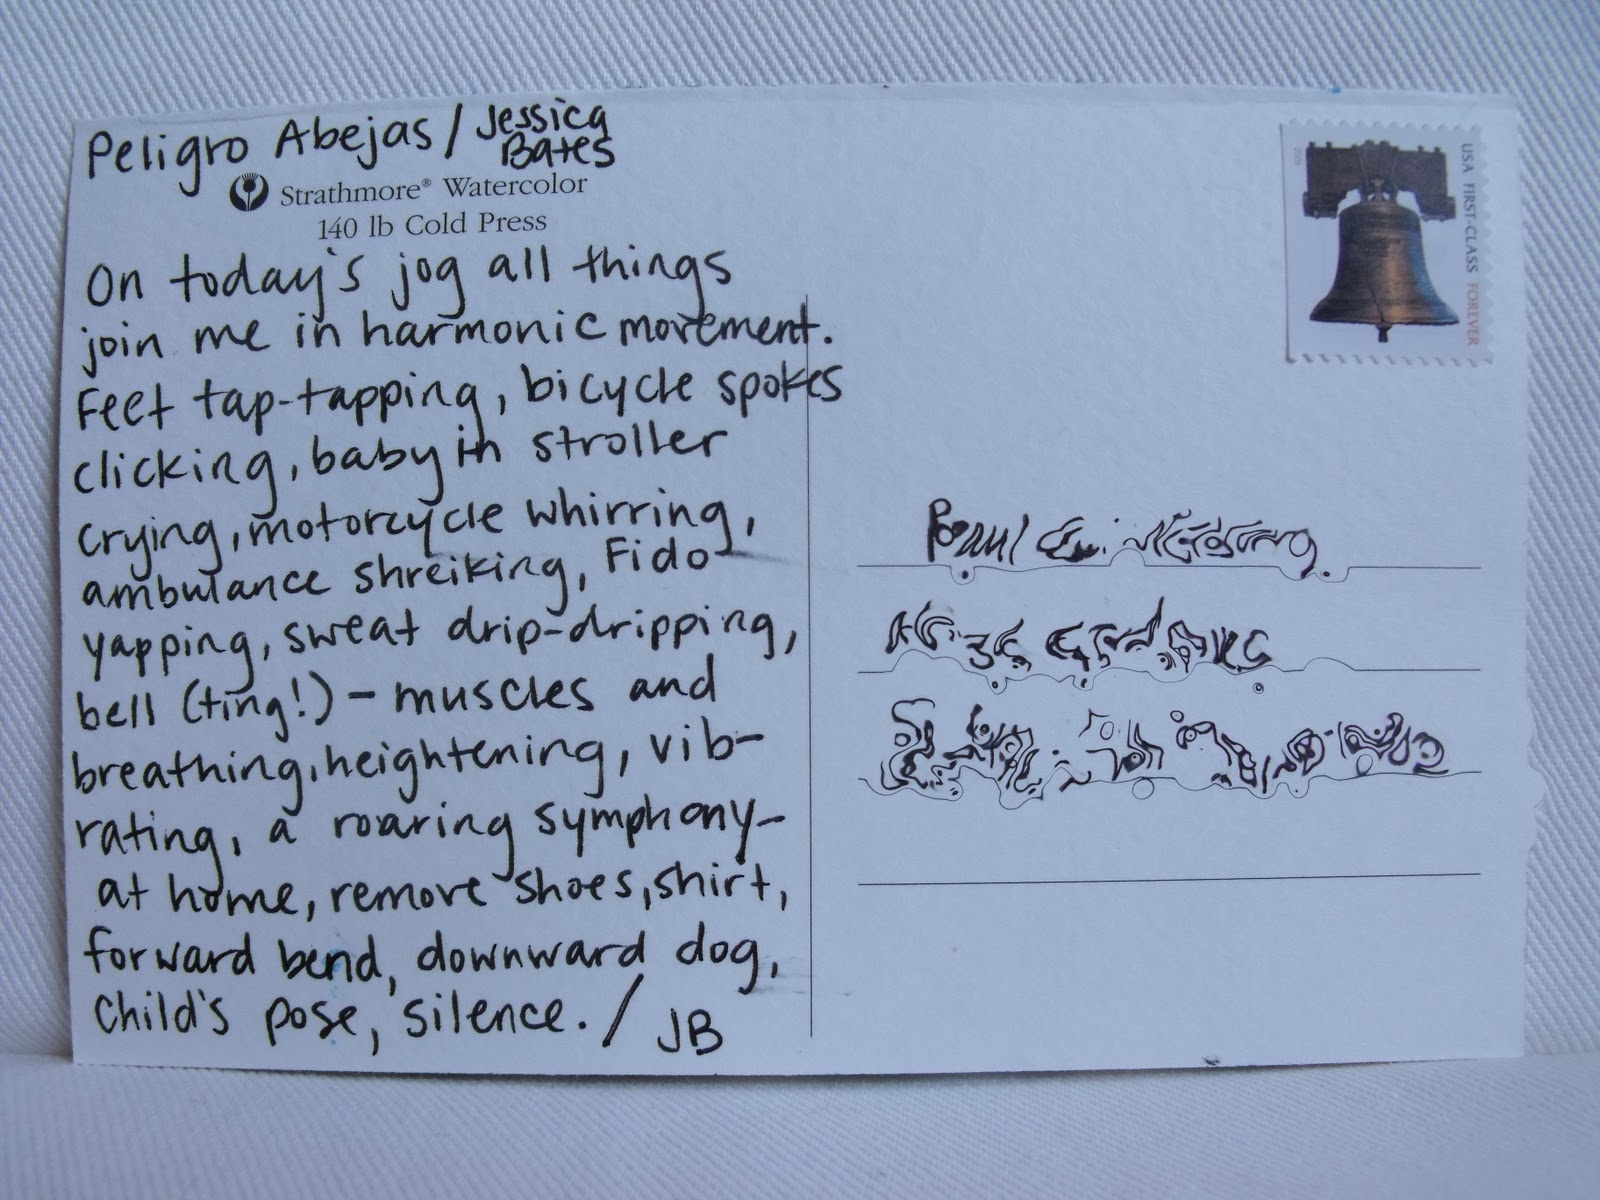 Peligro Abejas / Jessica
Bates
Strathmore® Watercolor
140 lb Cold Press
On today's jog all things
join me in harmonic movement.
Feet tap-tapping, bicycle spokes
clicking, baby in stroller
crying, motorcycle whirring,
ambulance shreiking, Fido
yapping, sweat drip-dripping,
bell (ting!) - muscles and
breathing, heightening, vib-
rating, a roaring symphony-
at home, remove shoes, shirt,
forward bend, downward dog,
child's pose, silence. / JB
USA FIRST-CLASS FOREVER
Paul